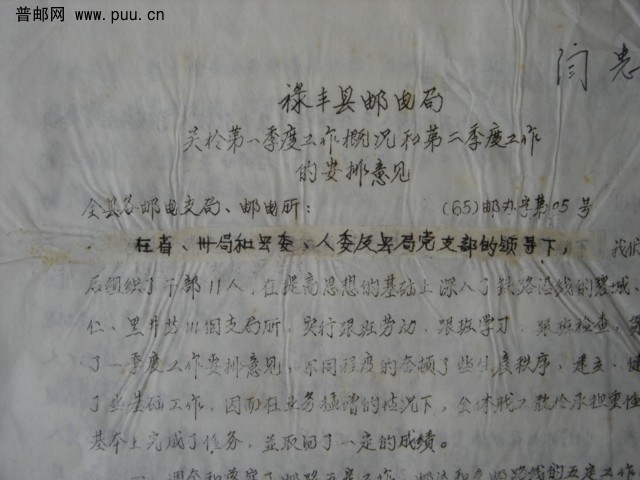 普邮网 www.puu.cn
闫志
禄丰县邮电局
关於第一季度工作概况和第二季度工作
的安排意见
全县各邮电支局、邮电所： (65)邮办字第05号
在省、州局和县委、人委及县局党支部的领导下， 我们
后组织了干部11人，在提高思想的基础上深入了铁路沿线的
仁、黑井等 个支局所，实行跟班劳动，跟班学习，跟班检查，
了一季度工作安排意见，不同程度的整顿了些生产秩序，建立、健
了些基础工作，因而在业务猛增的情况下，全体职工
基本上完成了任务，並取得了一定的成绩。
一、调查和 了邮路 工作